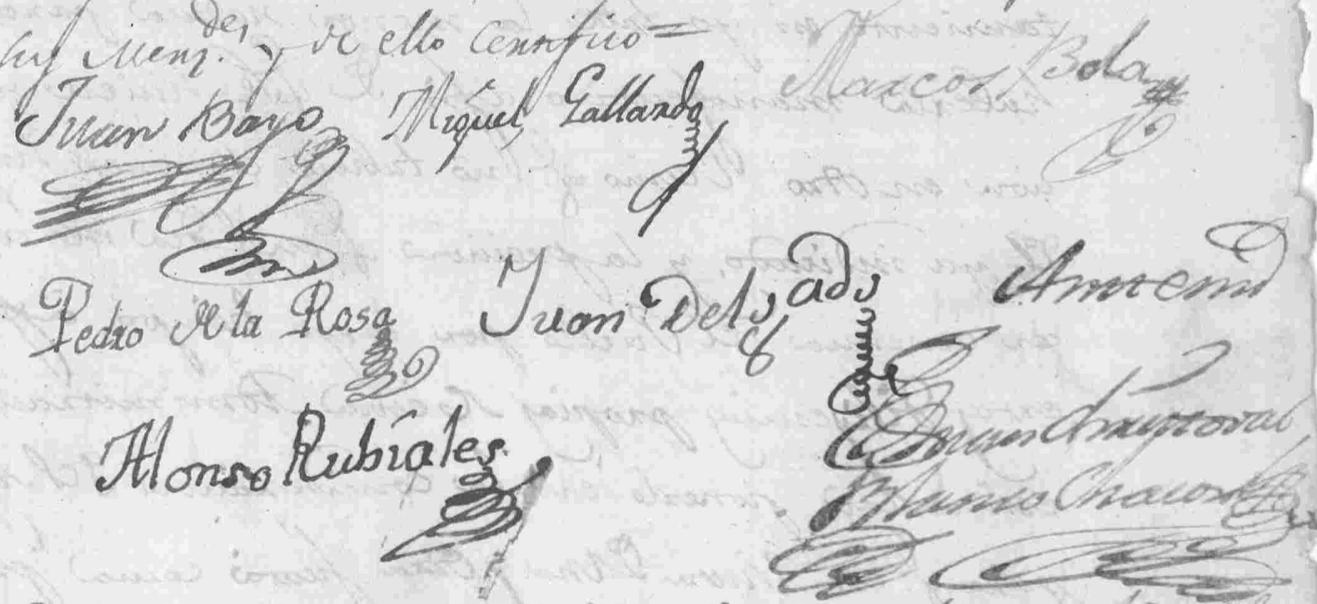 sus Merz.des y de ello Certifico =
Juan Bayo Miguel Gallardo Marcos Bola
Pedro de la Rosa Juan Delgado Ante mi
Alonso Rubiales Juan Christoval
Chacon